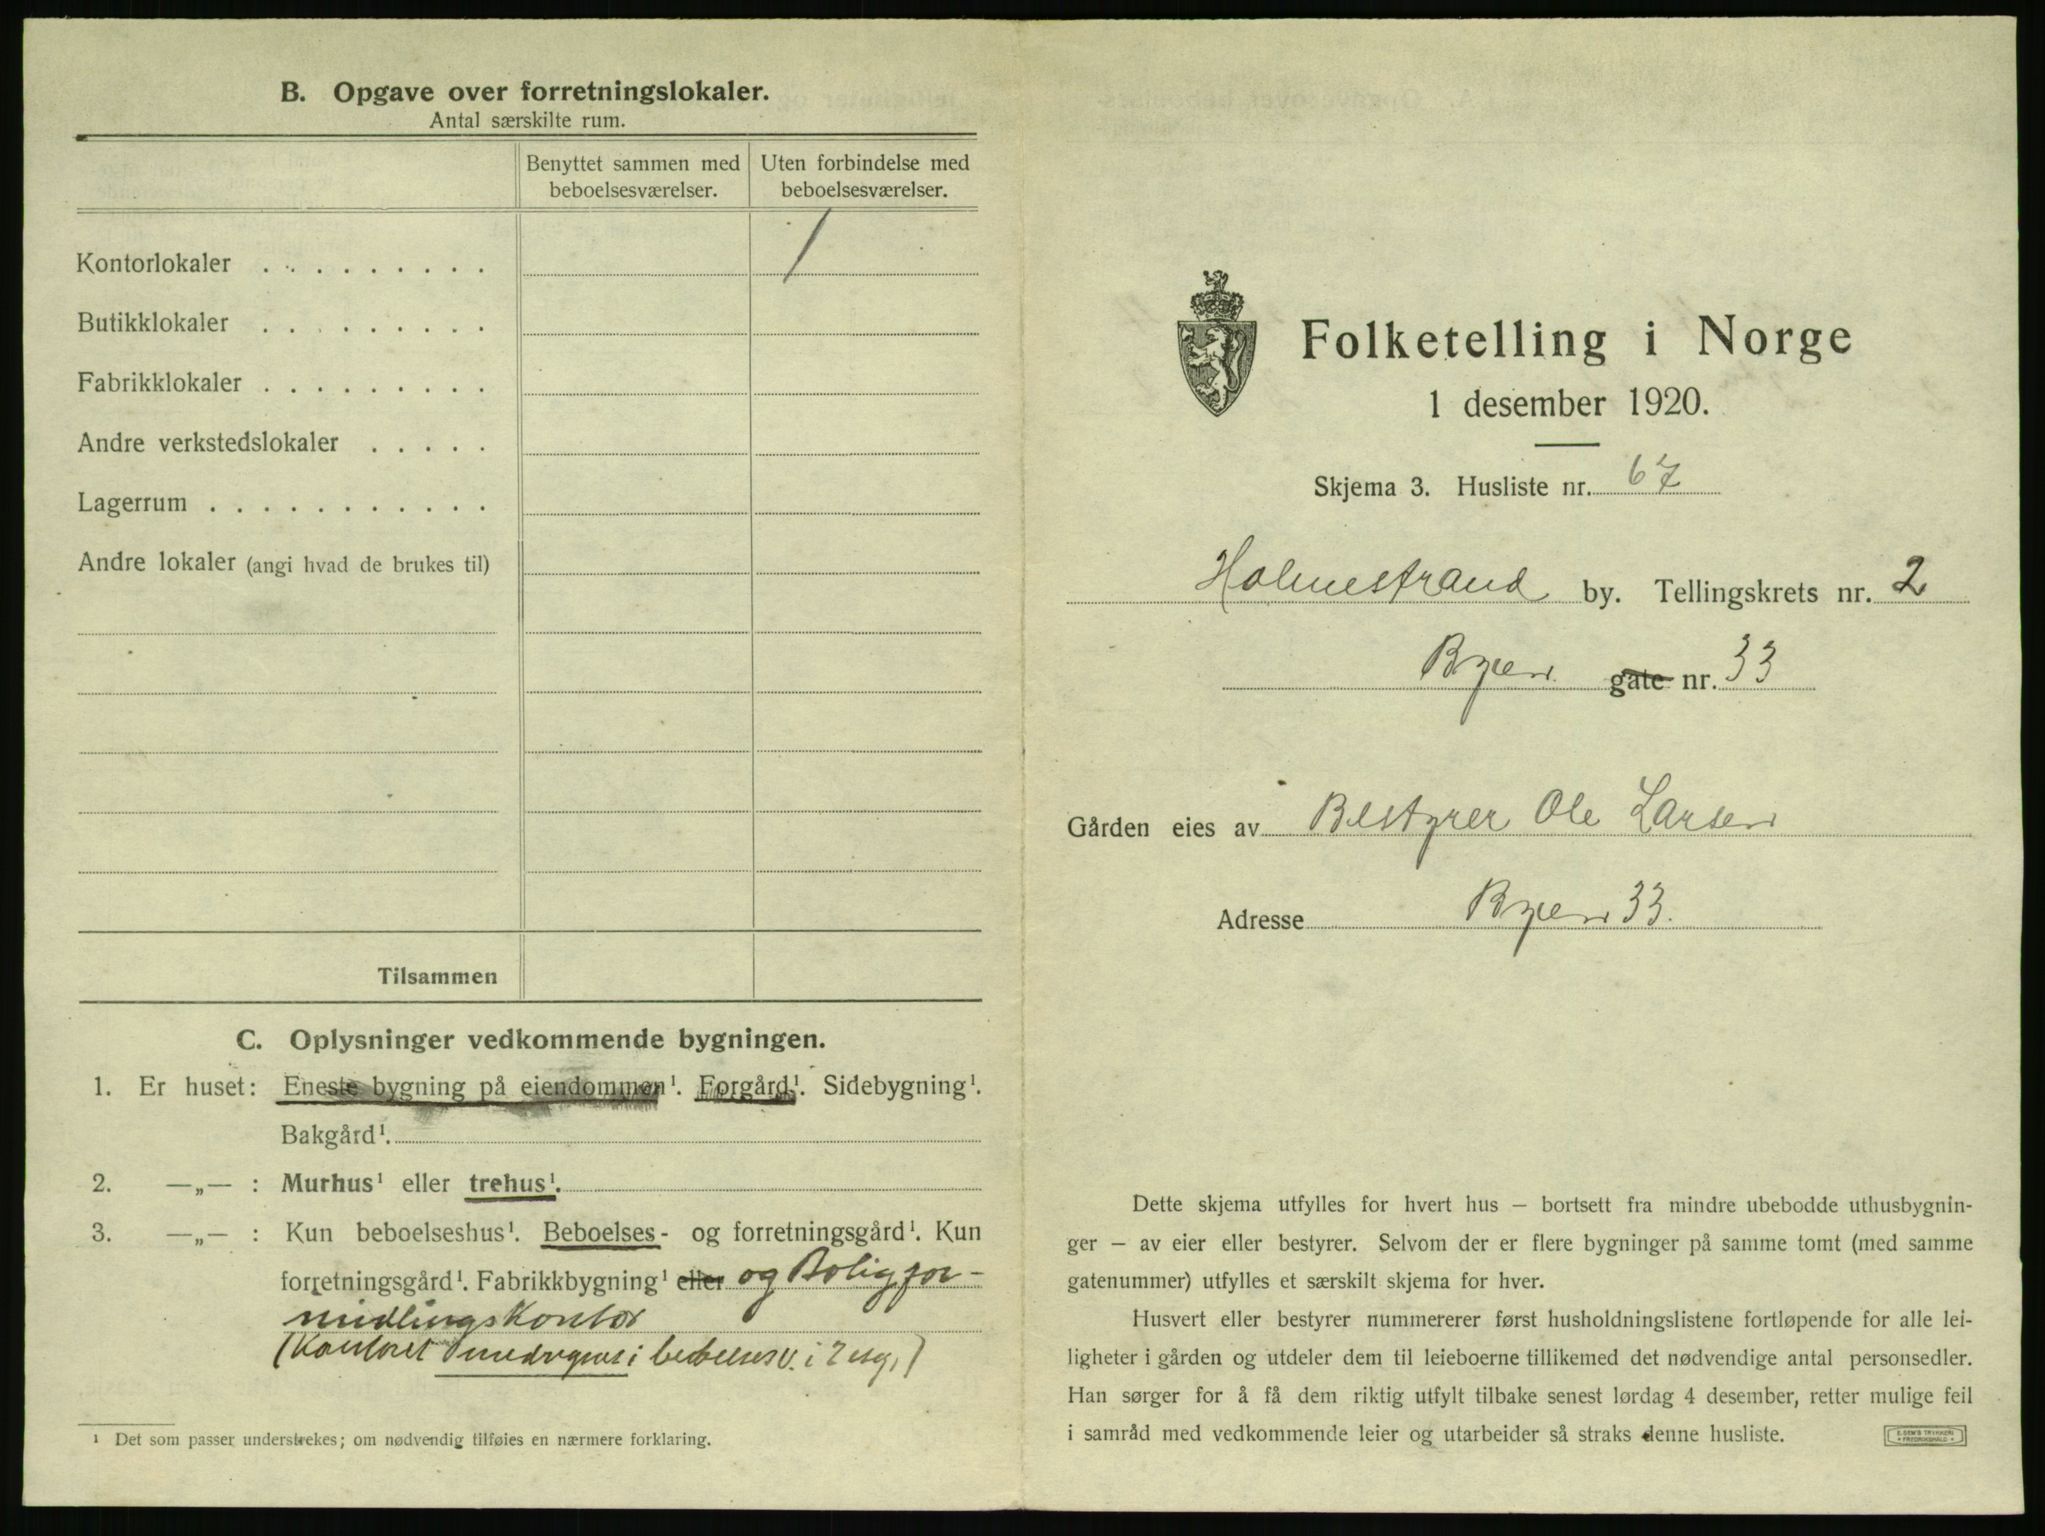 B. Opgave over forretningslokaler.
Antal særskilte rum.
Benyttet sammen med beboelsesværelser.
Uten forbindelse med beboelsesværelser.
Kontorlokaler . . . . . . . . . 1
Butikklokaler . . . . . . . . .
Fabrikklokaler . . . . . . . . .
Andre verkstedslokaler . . . . .
Lagerrum . . . . . . . . . . .
Andre lokaler (angi hvad de brukes til)
Tilsammen
C. Oplysninger vedkommende bygningen.
1. Er huset: Eneste bygning på eiendommen¹. Forgård¹. Sidebygning¹.
Bakgård¹.
2. —„— : Murhus¹ eller trehus¹.
3. —„— : Kun beboelseshus¹. Beboelses- og forretningsgård¹. Kun
forretningsgård¹. Fabrikkbygning¹ eller og Boligfor-
midlingskontor
(Kontoret medregnes i beboelsesv. i 2 etg.)
¹ Det som passer understrekes; om nødvendig tilføies en nærmere forklaring.
Folketelling i Norge
1 desember 1920.
Skjema 3. Husliste nr. 67
Holmestrand by. Tellingskrets nr. 2
Byen gate nr. 33
Gården eies av Bestyrer Ole Larsen
Adresse Byen 33.
Dette skjema utfylles for hvert hus – bortsett fra mindre ubebodde uthusbygnin-
ger – av eier eller bestyrer. Selvom der er flere bygninger på samme tomt (med samme
gatenummer) utfylles et særskilt skjema for hver.
Husvert eller bestyrer nummererer først husholdningslistene fortløpende for alle lei-
ligheter i gården og utdeler dem til leieboerne tillikemed det nødvendige antal personsedler.
Han sørger for å få dem riktig utfylt tilbake senest lørdag 4 desember, retter mulige feil
i samråd med vedkommende leier og utarbeider så straks denne husliste.
E. SEM'S TRYKKERI
FREDRIKSHALD